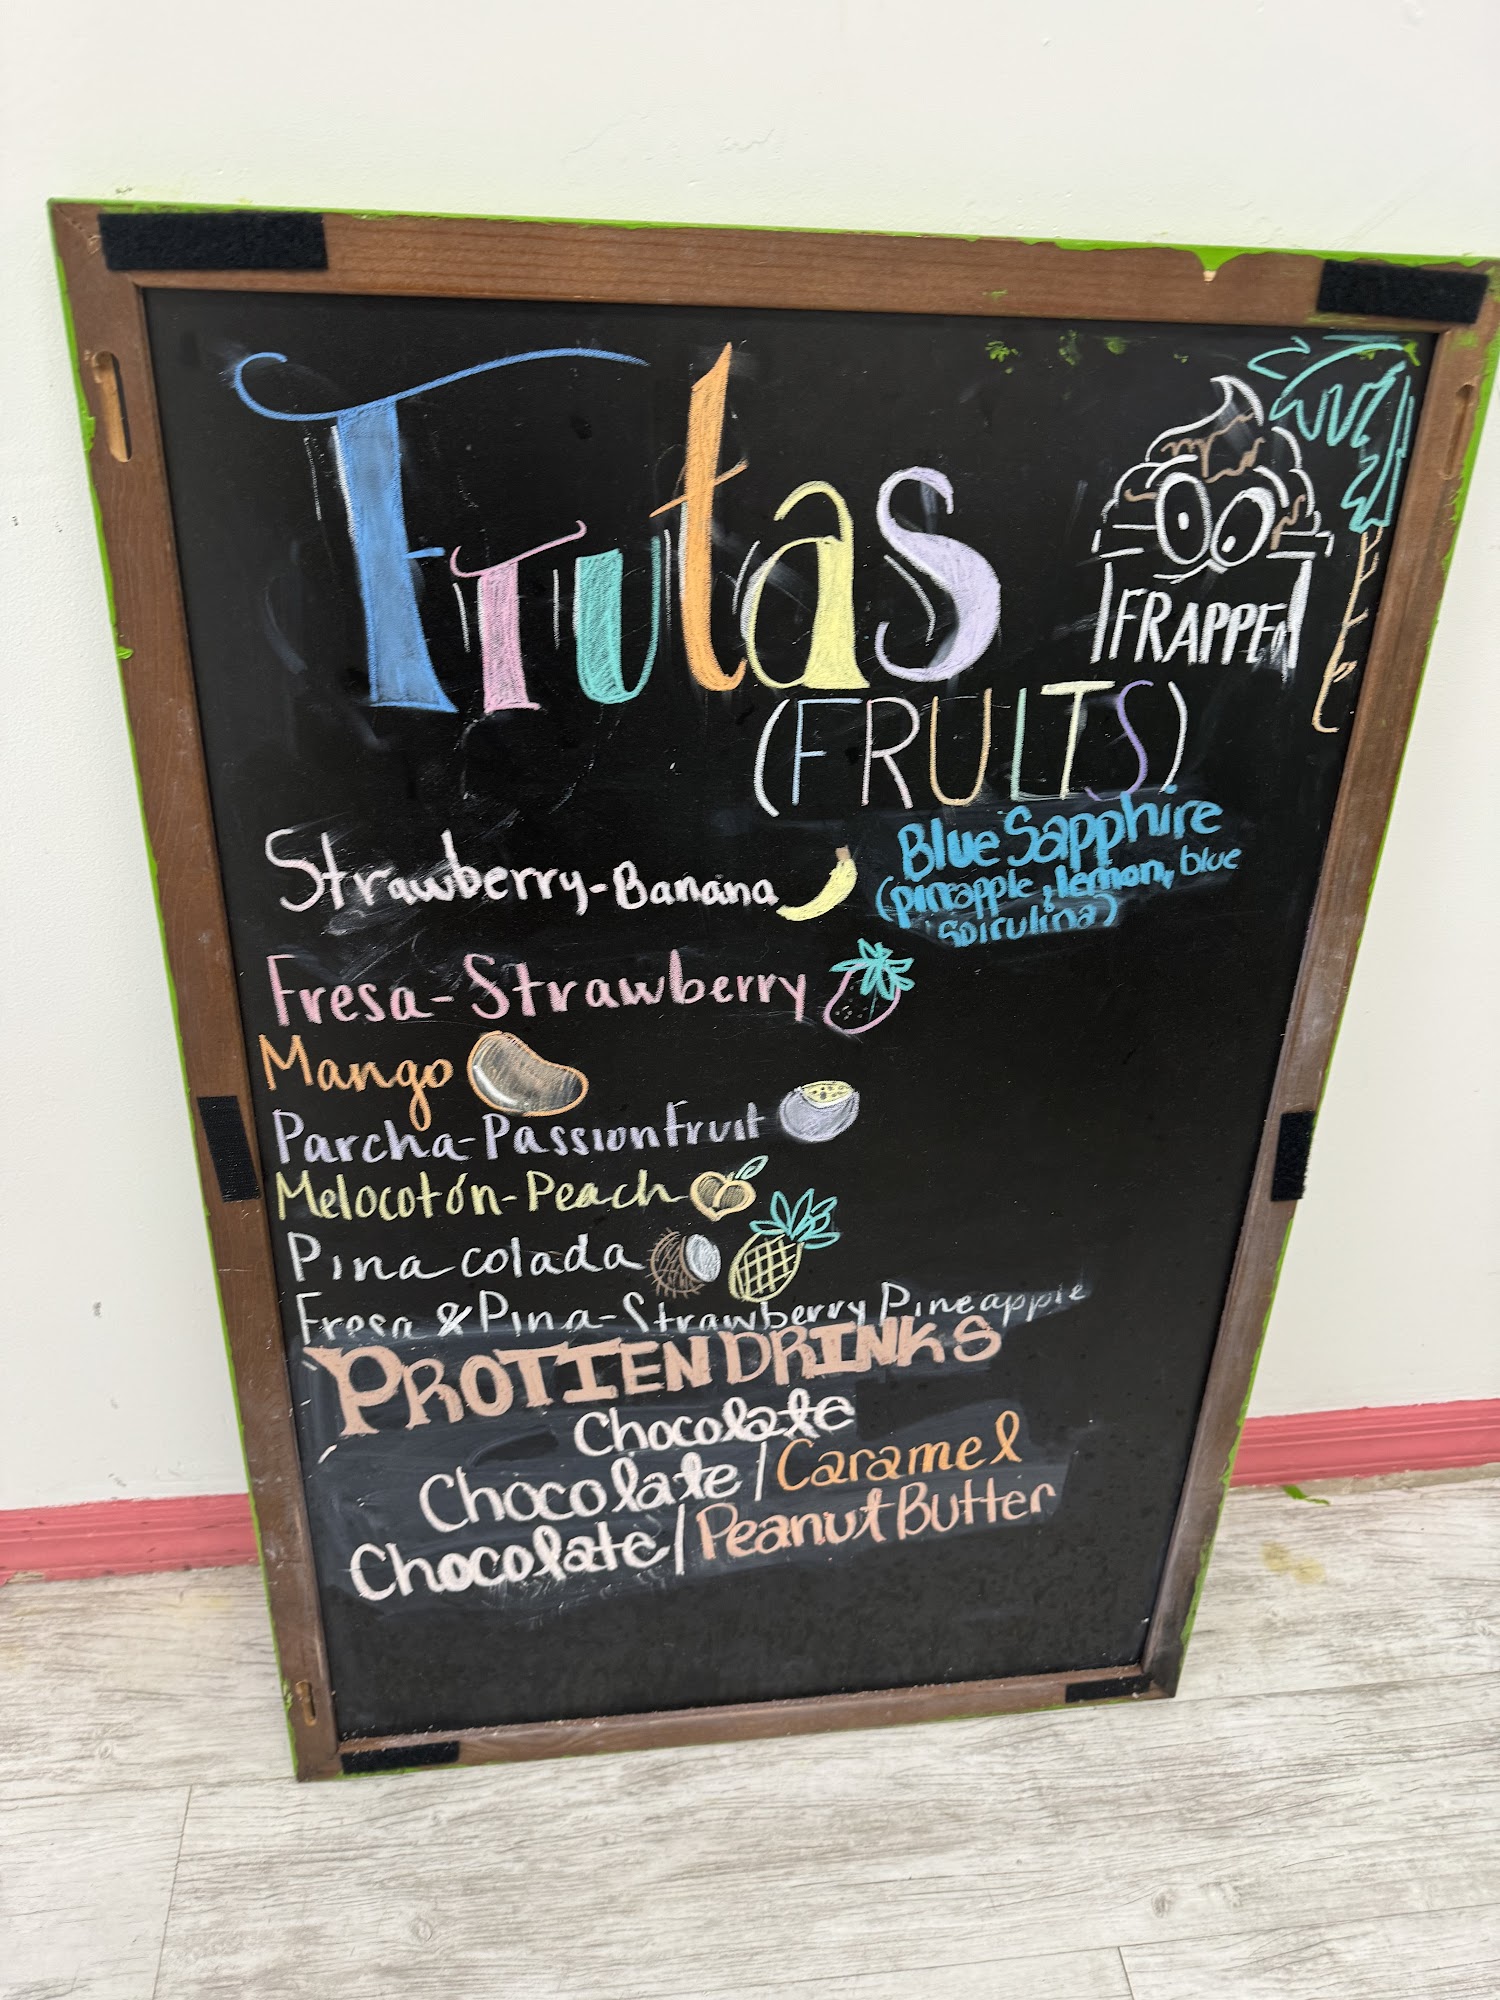 Frutas
FRAPPED
(FRUITS)
Strawberry-Banana
Blue Sapphire
(pineapple, lemon, blue
spirulina)
Fresa-Strawberry
Mango
Parcha-Passionfruit
Melocotón-Peach
Pina colada
Fresa & Pina-Strawberry Pineapple
PROTIEN DRINKS
Chocolate
Chocolate/Caramel
Chocolate/Peanut Butter